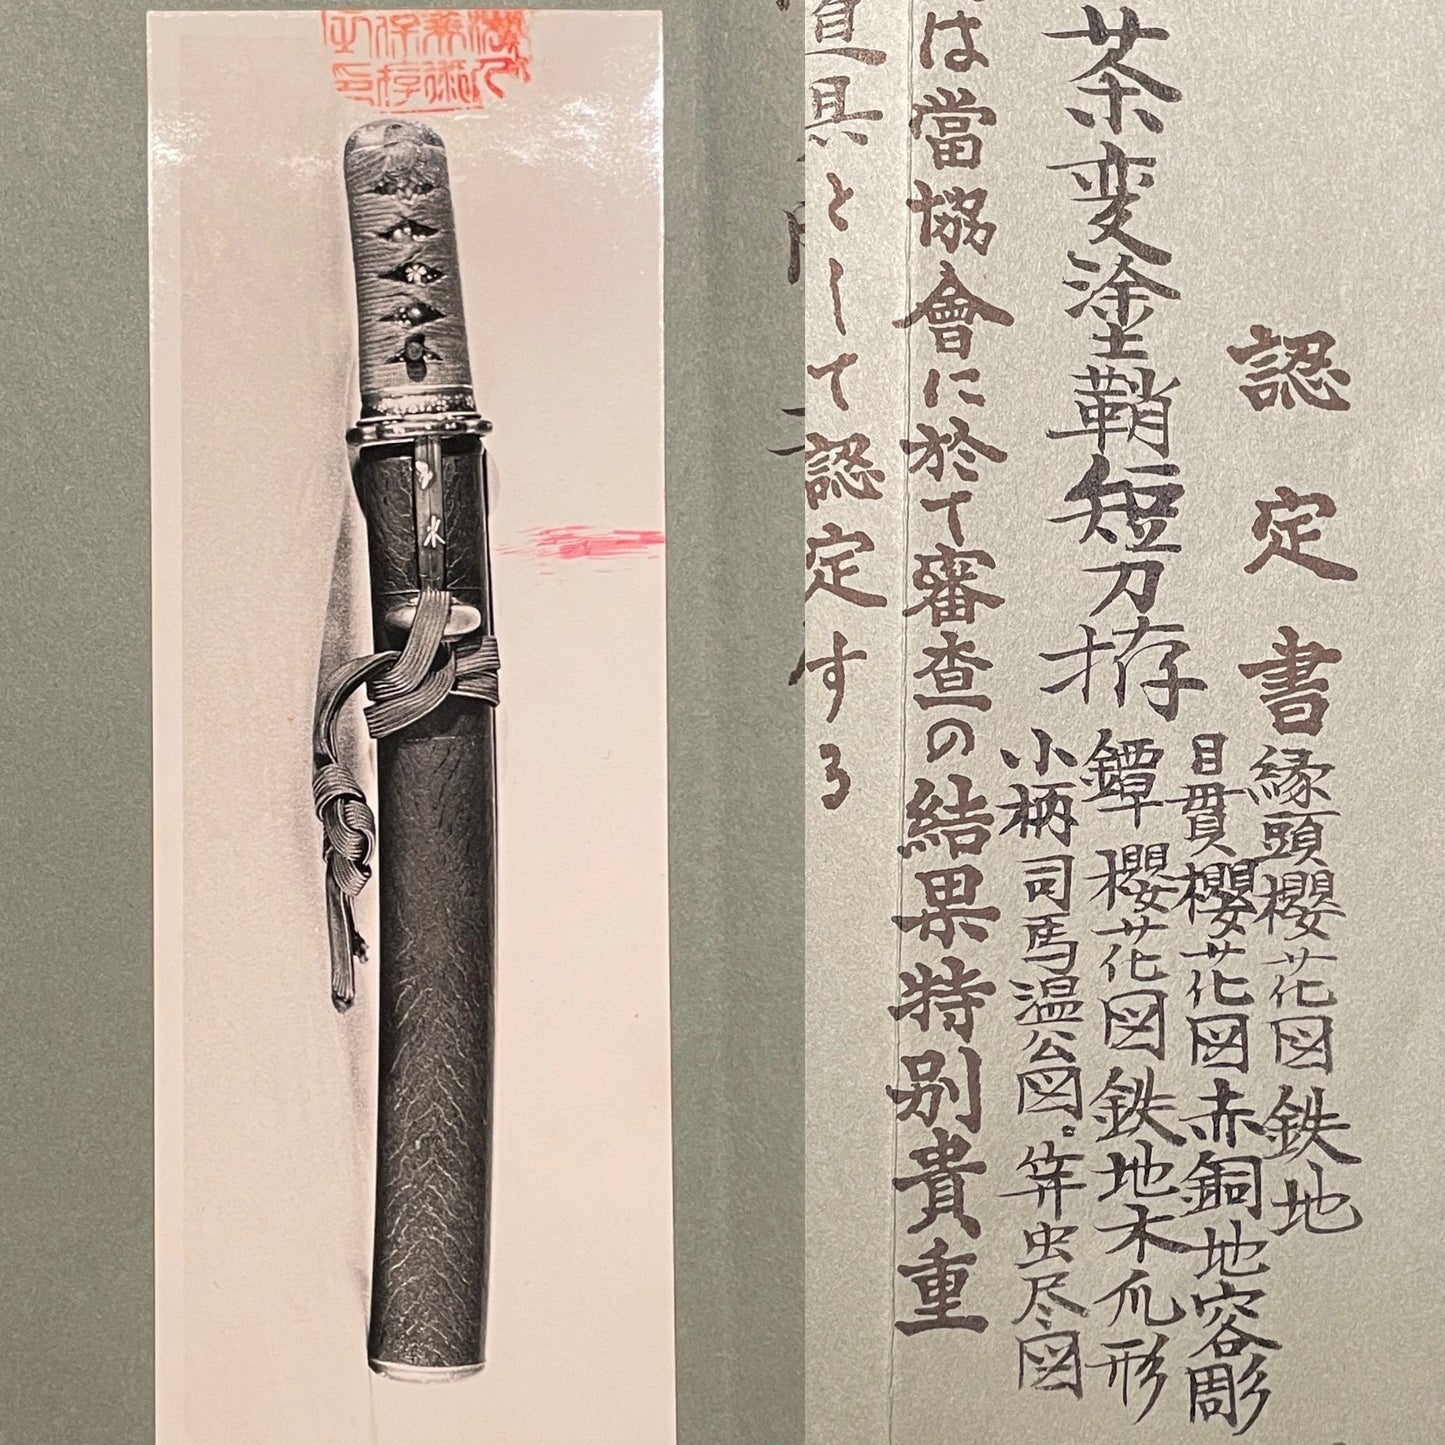 認定書
縁頭櫻花図鉄地
目貫櫻花図赤銅地容彫
茶変塗鞘短刀拵
鐔櫻花図鉄地木爪形
小柄司馬温公図。笄虫尽図
は當協會に於て審査の結果特別貴重
道具として認定する